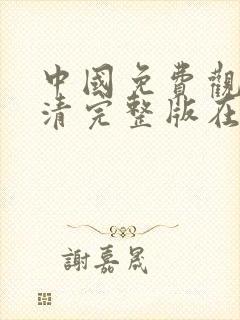 中國免費觀
清完整版在
謝嘉晟